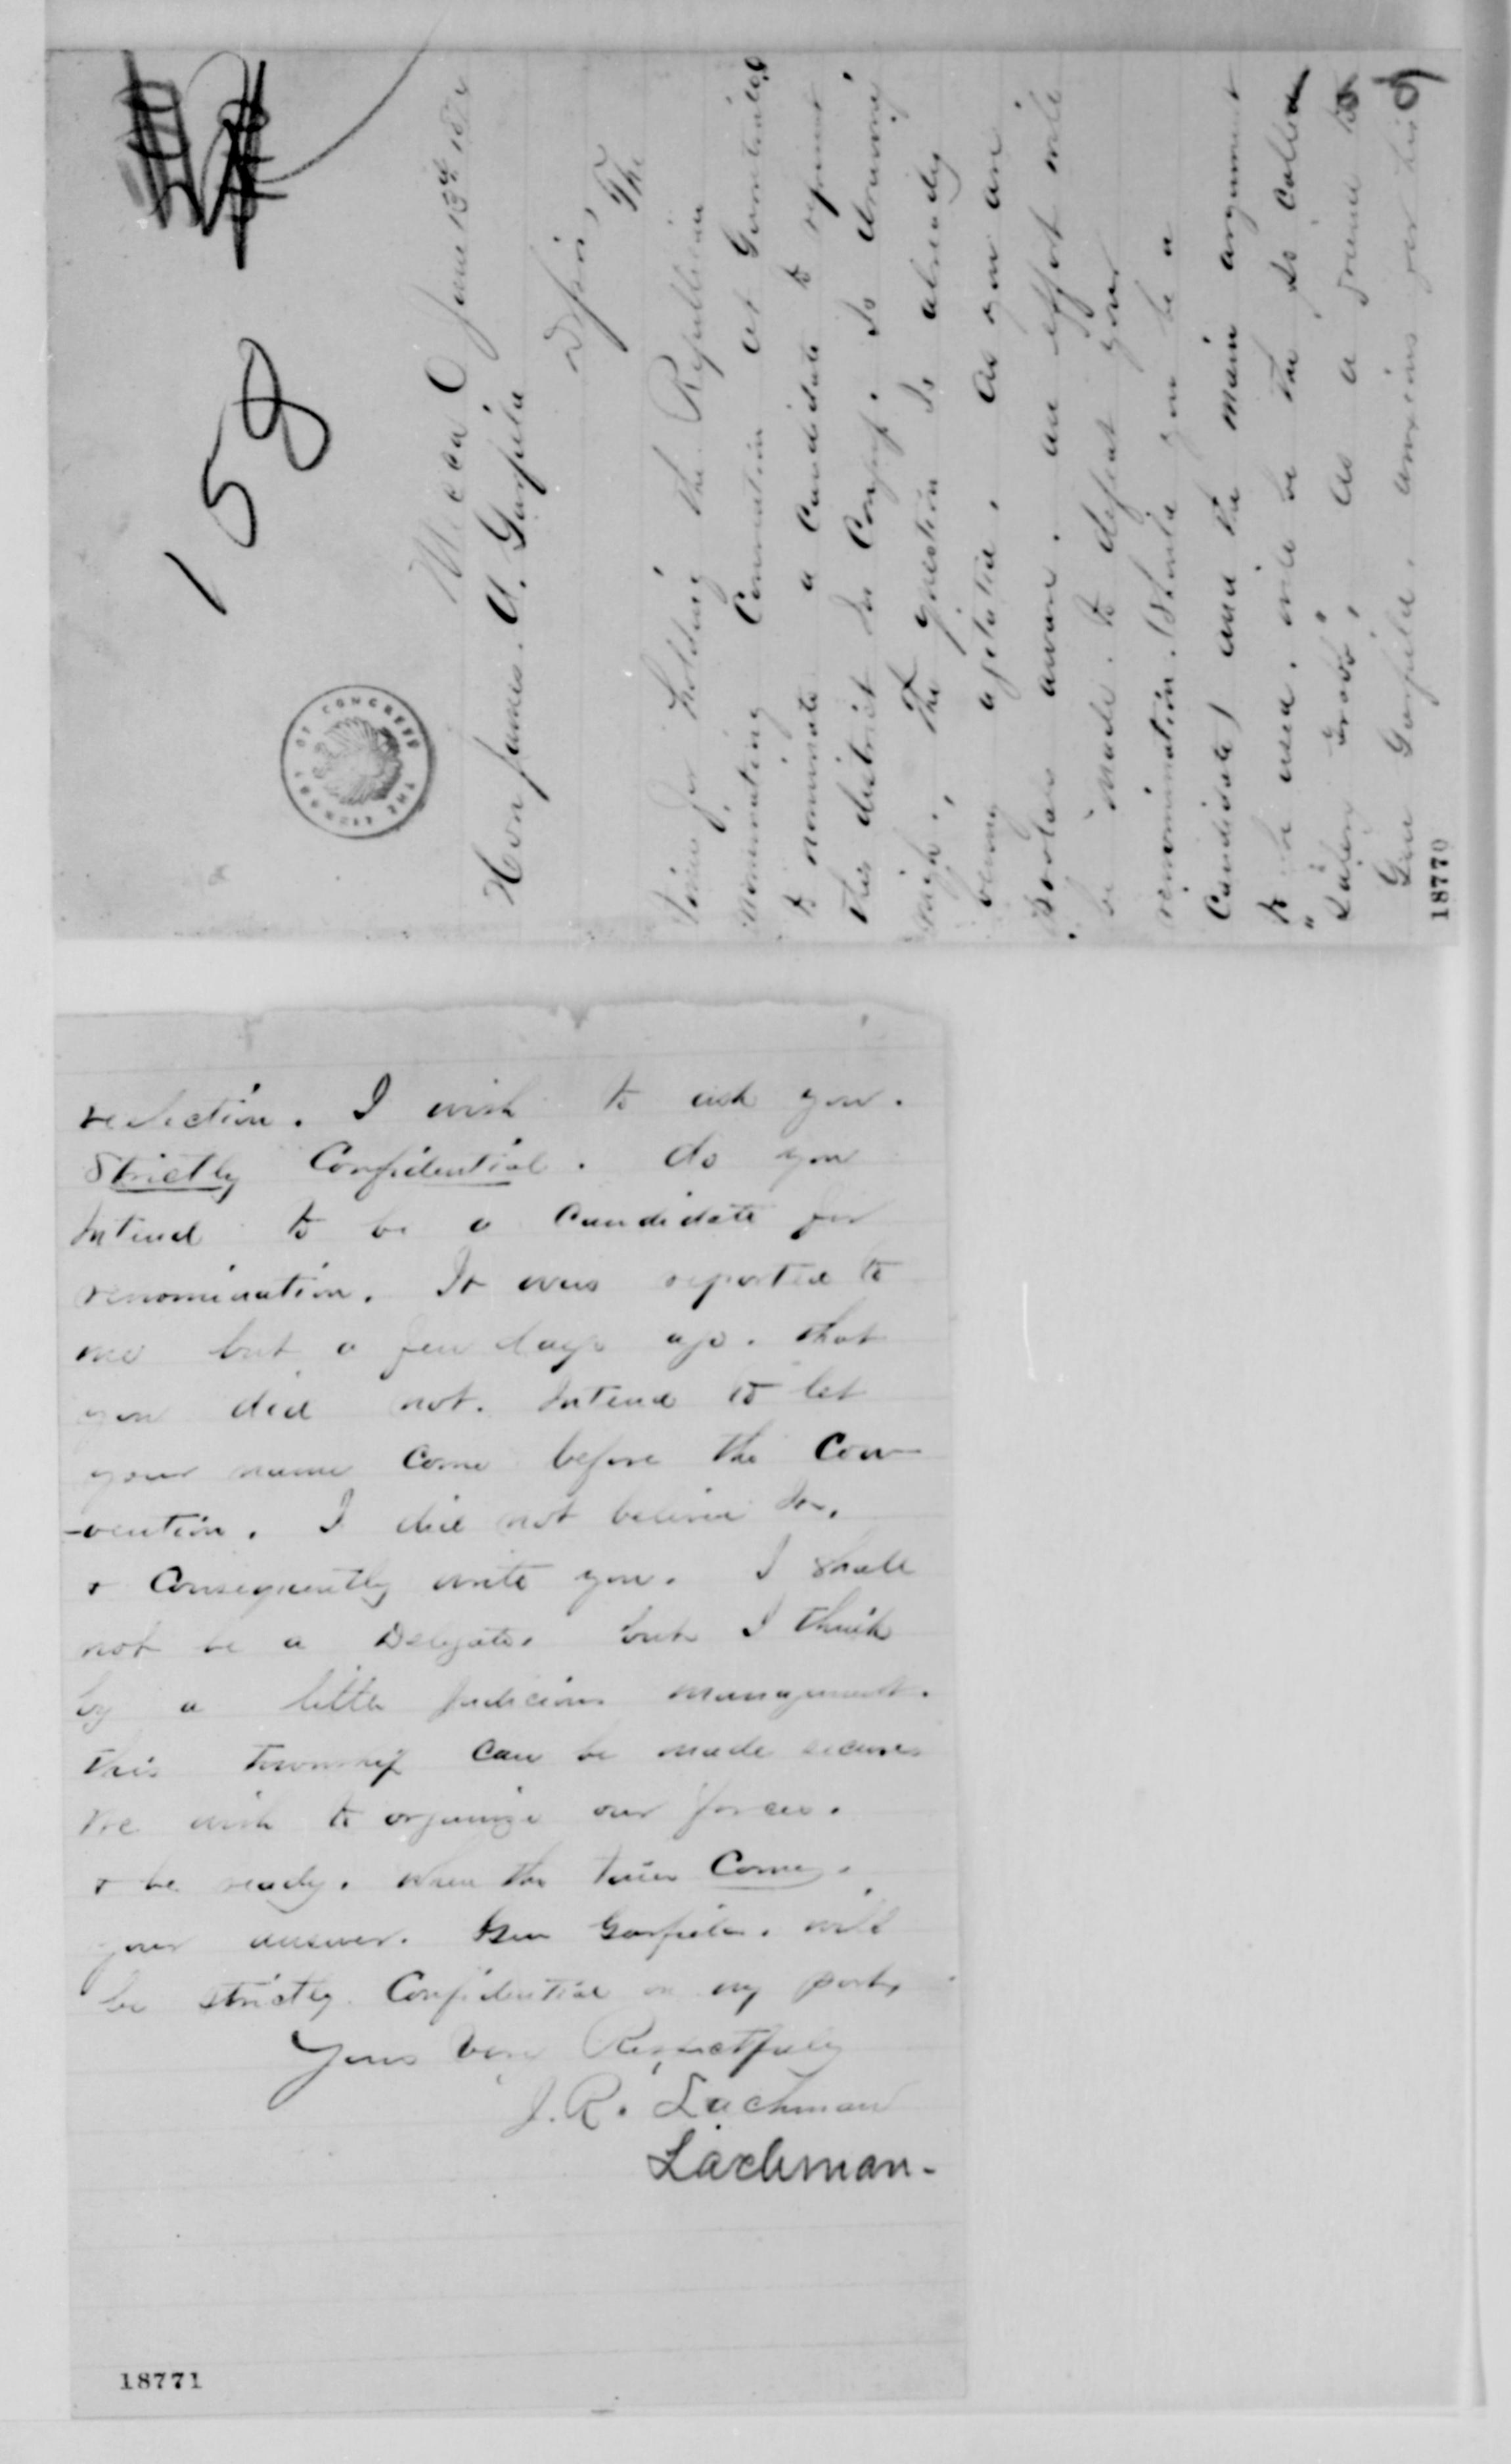 158
Mecca O June 13th 187
Hon James. A. Garfield
D Sir,
The
time for holding the Republican
nominating Convention at Garrettsville
to nominate a Candidate to represent
this district in Congress. is drawing
nigh. The question is already
being agitated, as you are
doubtless aware. an effort will
be made. to defeat your
renomination. (Should you be a
Candidate) and the main argument
to be used. will be the so called
"Salary Grab", as a friend to
Gen Garfield, anxious for his
18770
THE LIBRARY OF CONGRESS
relection. I wish to ask you.
Strictly Confidential. do you
intend to be a Candidate for
renomination. It was reported to
me but a few days ago. that
you did not. intend to let
your name come before the Con
-vention. I did not believe so,
& Consequently write you. I shall
not be a Delegate. but I think
by a little judicious management.
this township can be made secure
We wish to organize our forces.
& be ready. when the time Comes.
your answer. Gen Garfield. will
be strictly Confidential on my part,
Yours Very Respectfully
J. R. Lachman
Lachman-
18771